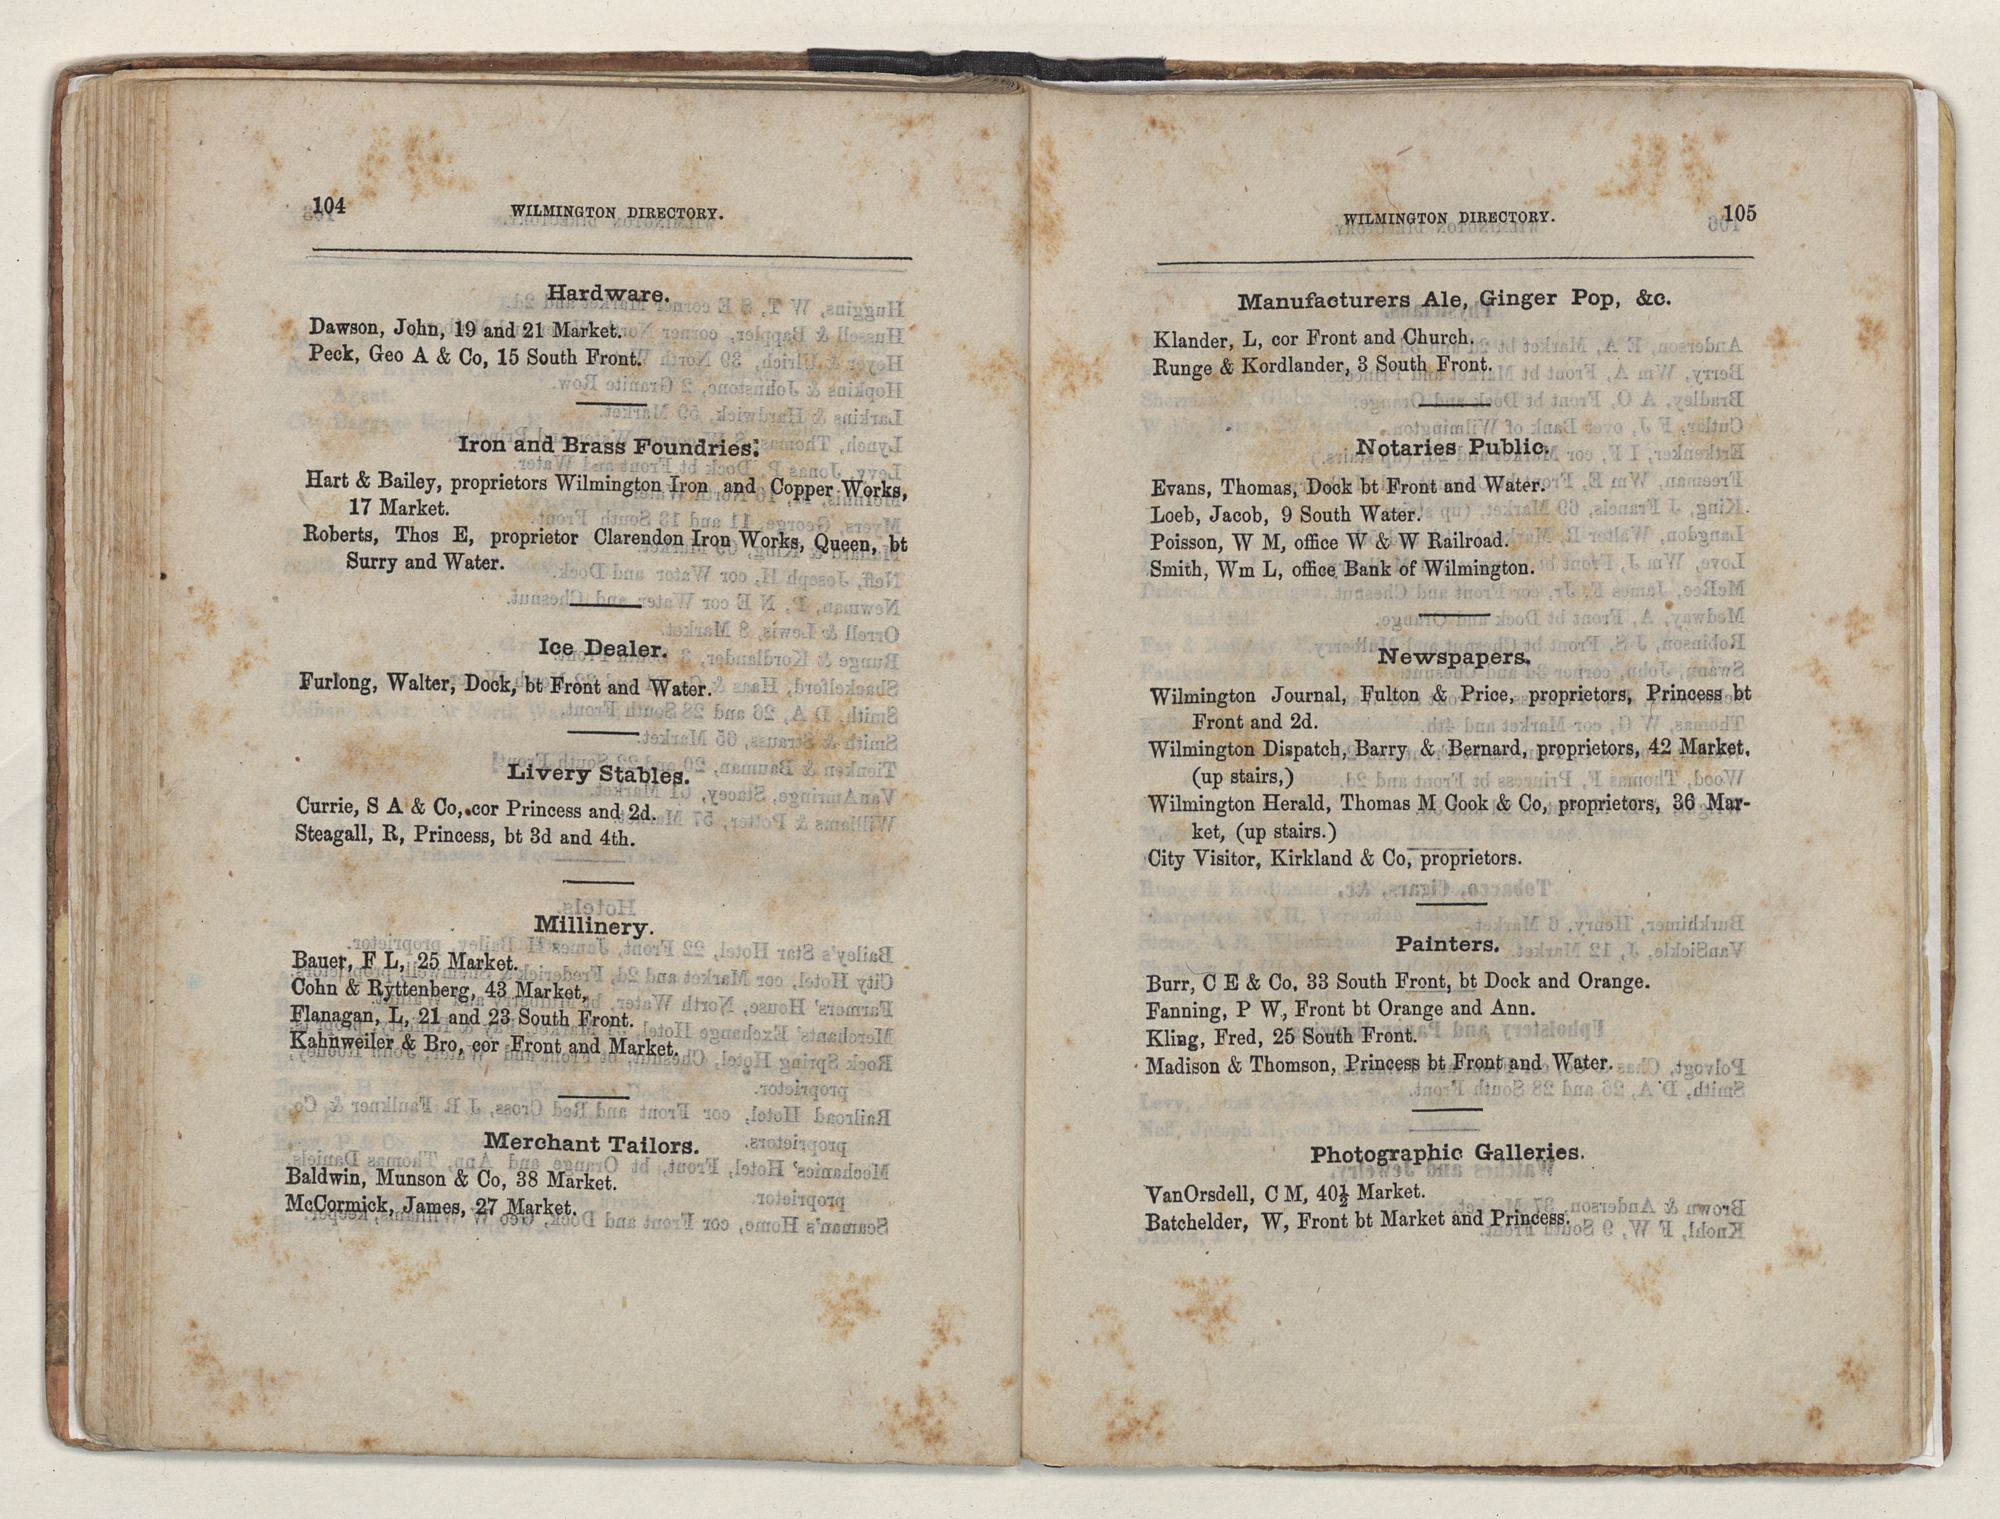 104
WILMINGTON DIRECTORY.
Hardware.
Dawson, John, 19 and 21 Market.
Peck, Geo A & Co, 15 South Front.
Iron and Brass Foundries.
Hart & Bailey, proprietors Wilmington Iron and Copper Works,
17 Market.
Roberts, Thos E, proprietor Clarendon Iron Works, Queen, bt
Surry and Water.
Ice Dealer.
Furlong, Walter, Dock, bt Front and Water.
Livery Stables.
Currie, S A & Co, cor Princess and 2d.
Steagall, R, Princess, bt 3d and 4th.
Millinery.
Bauer, F L, 25 Market.
Cohn & Ryttenberg, 43 Market,
Flanagan, L, 21 and 23 South Front.
Kahnweiler & Bro, cor Front and Market.
Merchant Tailors.
Baldwin, Munson & Co, 38 Market.
McCormick, James, 27 Market.
WILMINGTON DIRECTORY.
105
Manufacturers Ale, Ginger Pop, &c.
Klander, L, cor Front and Church.
Runge & Kordlander, 3 South Front.
Notaries Public.
Evans, Thomas, Dock bt Front and Water.
Loeb, Jacob, 9 South Water.
Poisson, W M, office W & W Railroad.
Smith, Wm L, office Bank of Wilmington.
Newspapers.
Wilmington Journal, Fulton & Price, proprietors, Princess bt
Front and 2d.
Wilmington Dispatch, Barry & Bernard, proprietors, 42 Market,
(up stairs,)
Wilmington Herald, Thomas M Cook & Co, proprietors, 36 Mar-
ket, (up stairs.)
City Visitor, Kirkland & Co, proprietors.
Painters.
Burr, C E & Co, 33 South Front, bt Dock and Orange.
Fanning, P W, Front bt Orange and Ann.
Kling, Fred, 25 South Front.
Madison & Thomson, Princess bt Front and Water.
Photographic Galleries.
VanOrsdell, C M, 40½ Market.
Batchelder, W, Front bt Market and Princess.